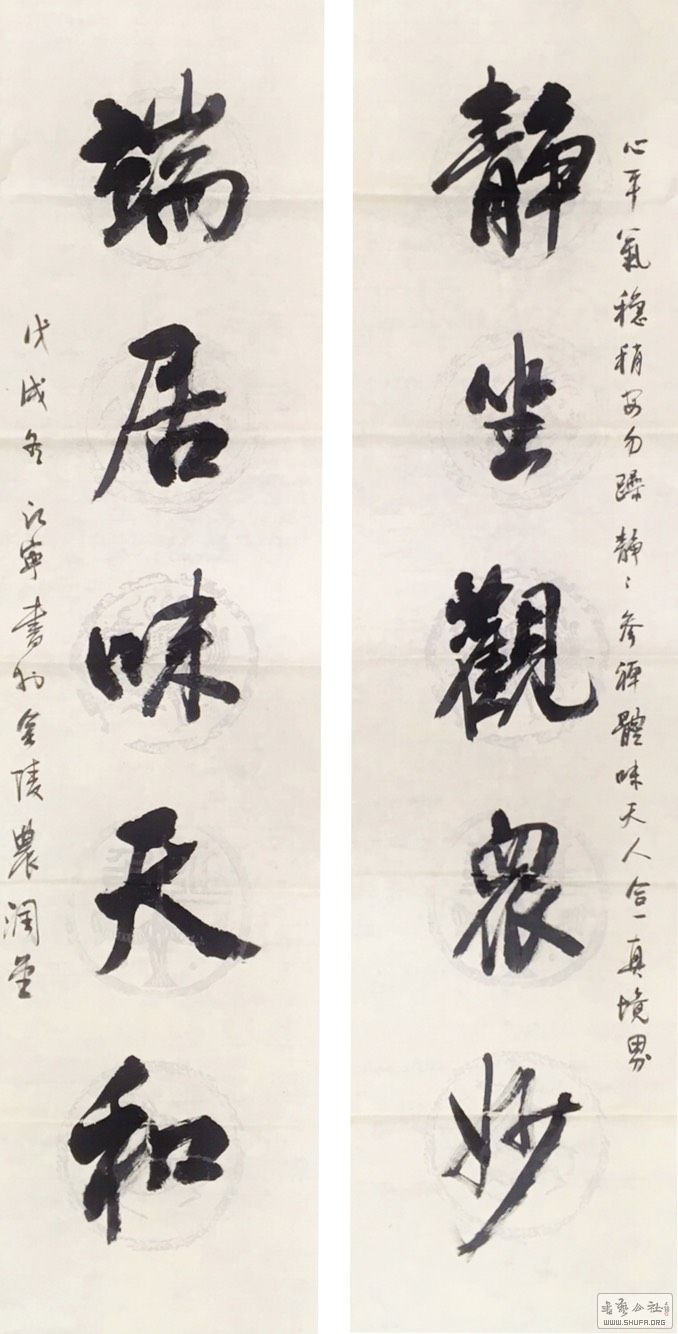 心平氣穩稍安勿躁靜々參禅體味天人合一真境界
靜坐觀衆妙
端居味天和
戊戌冬江寧書於金陵農润堂
書藝公社
WWW.SHUFA.ORG